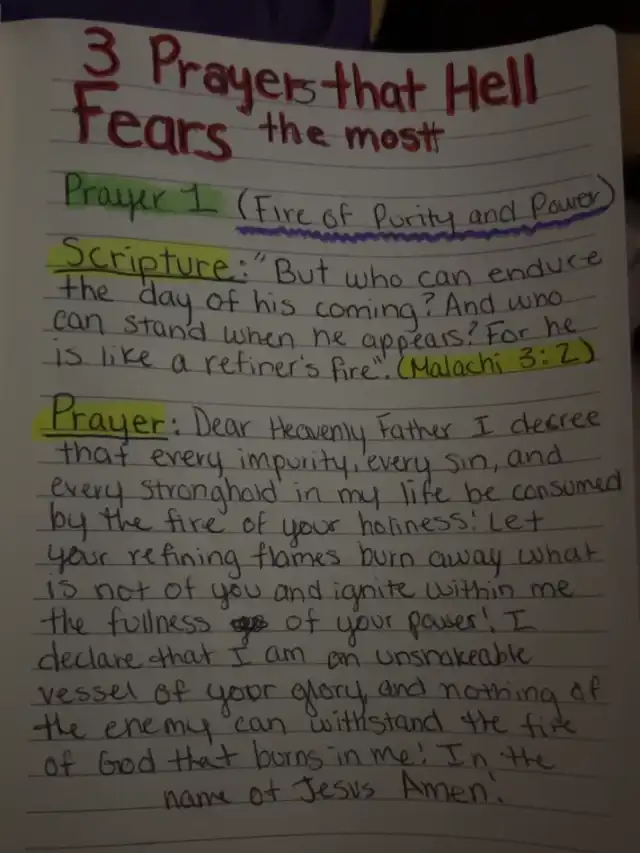 3 Prayers that Hell
Fears the most
Prayer 1 (Fire of Purity and Power)
Scripture: "But who can endure
the day of his coming? And who
can stand when he appears? For he
is like a refiner's fire". (Malachi 3:2)
Prayer: Dear Heavenly Father I decree
that every impurity, every sin, and
every stronghold in my life be consumed
by the fire of your holiness! Let
your refining flames burn away what
is not of you and ignite within me
the fullness of your power! I
declare that I am an unshakeable
vessel of your glory, and nothing of
the enemy can withstand the fire
of God that burns in me! In the
name of Jesus Amen!